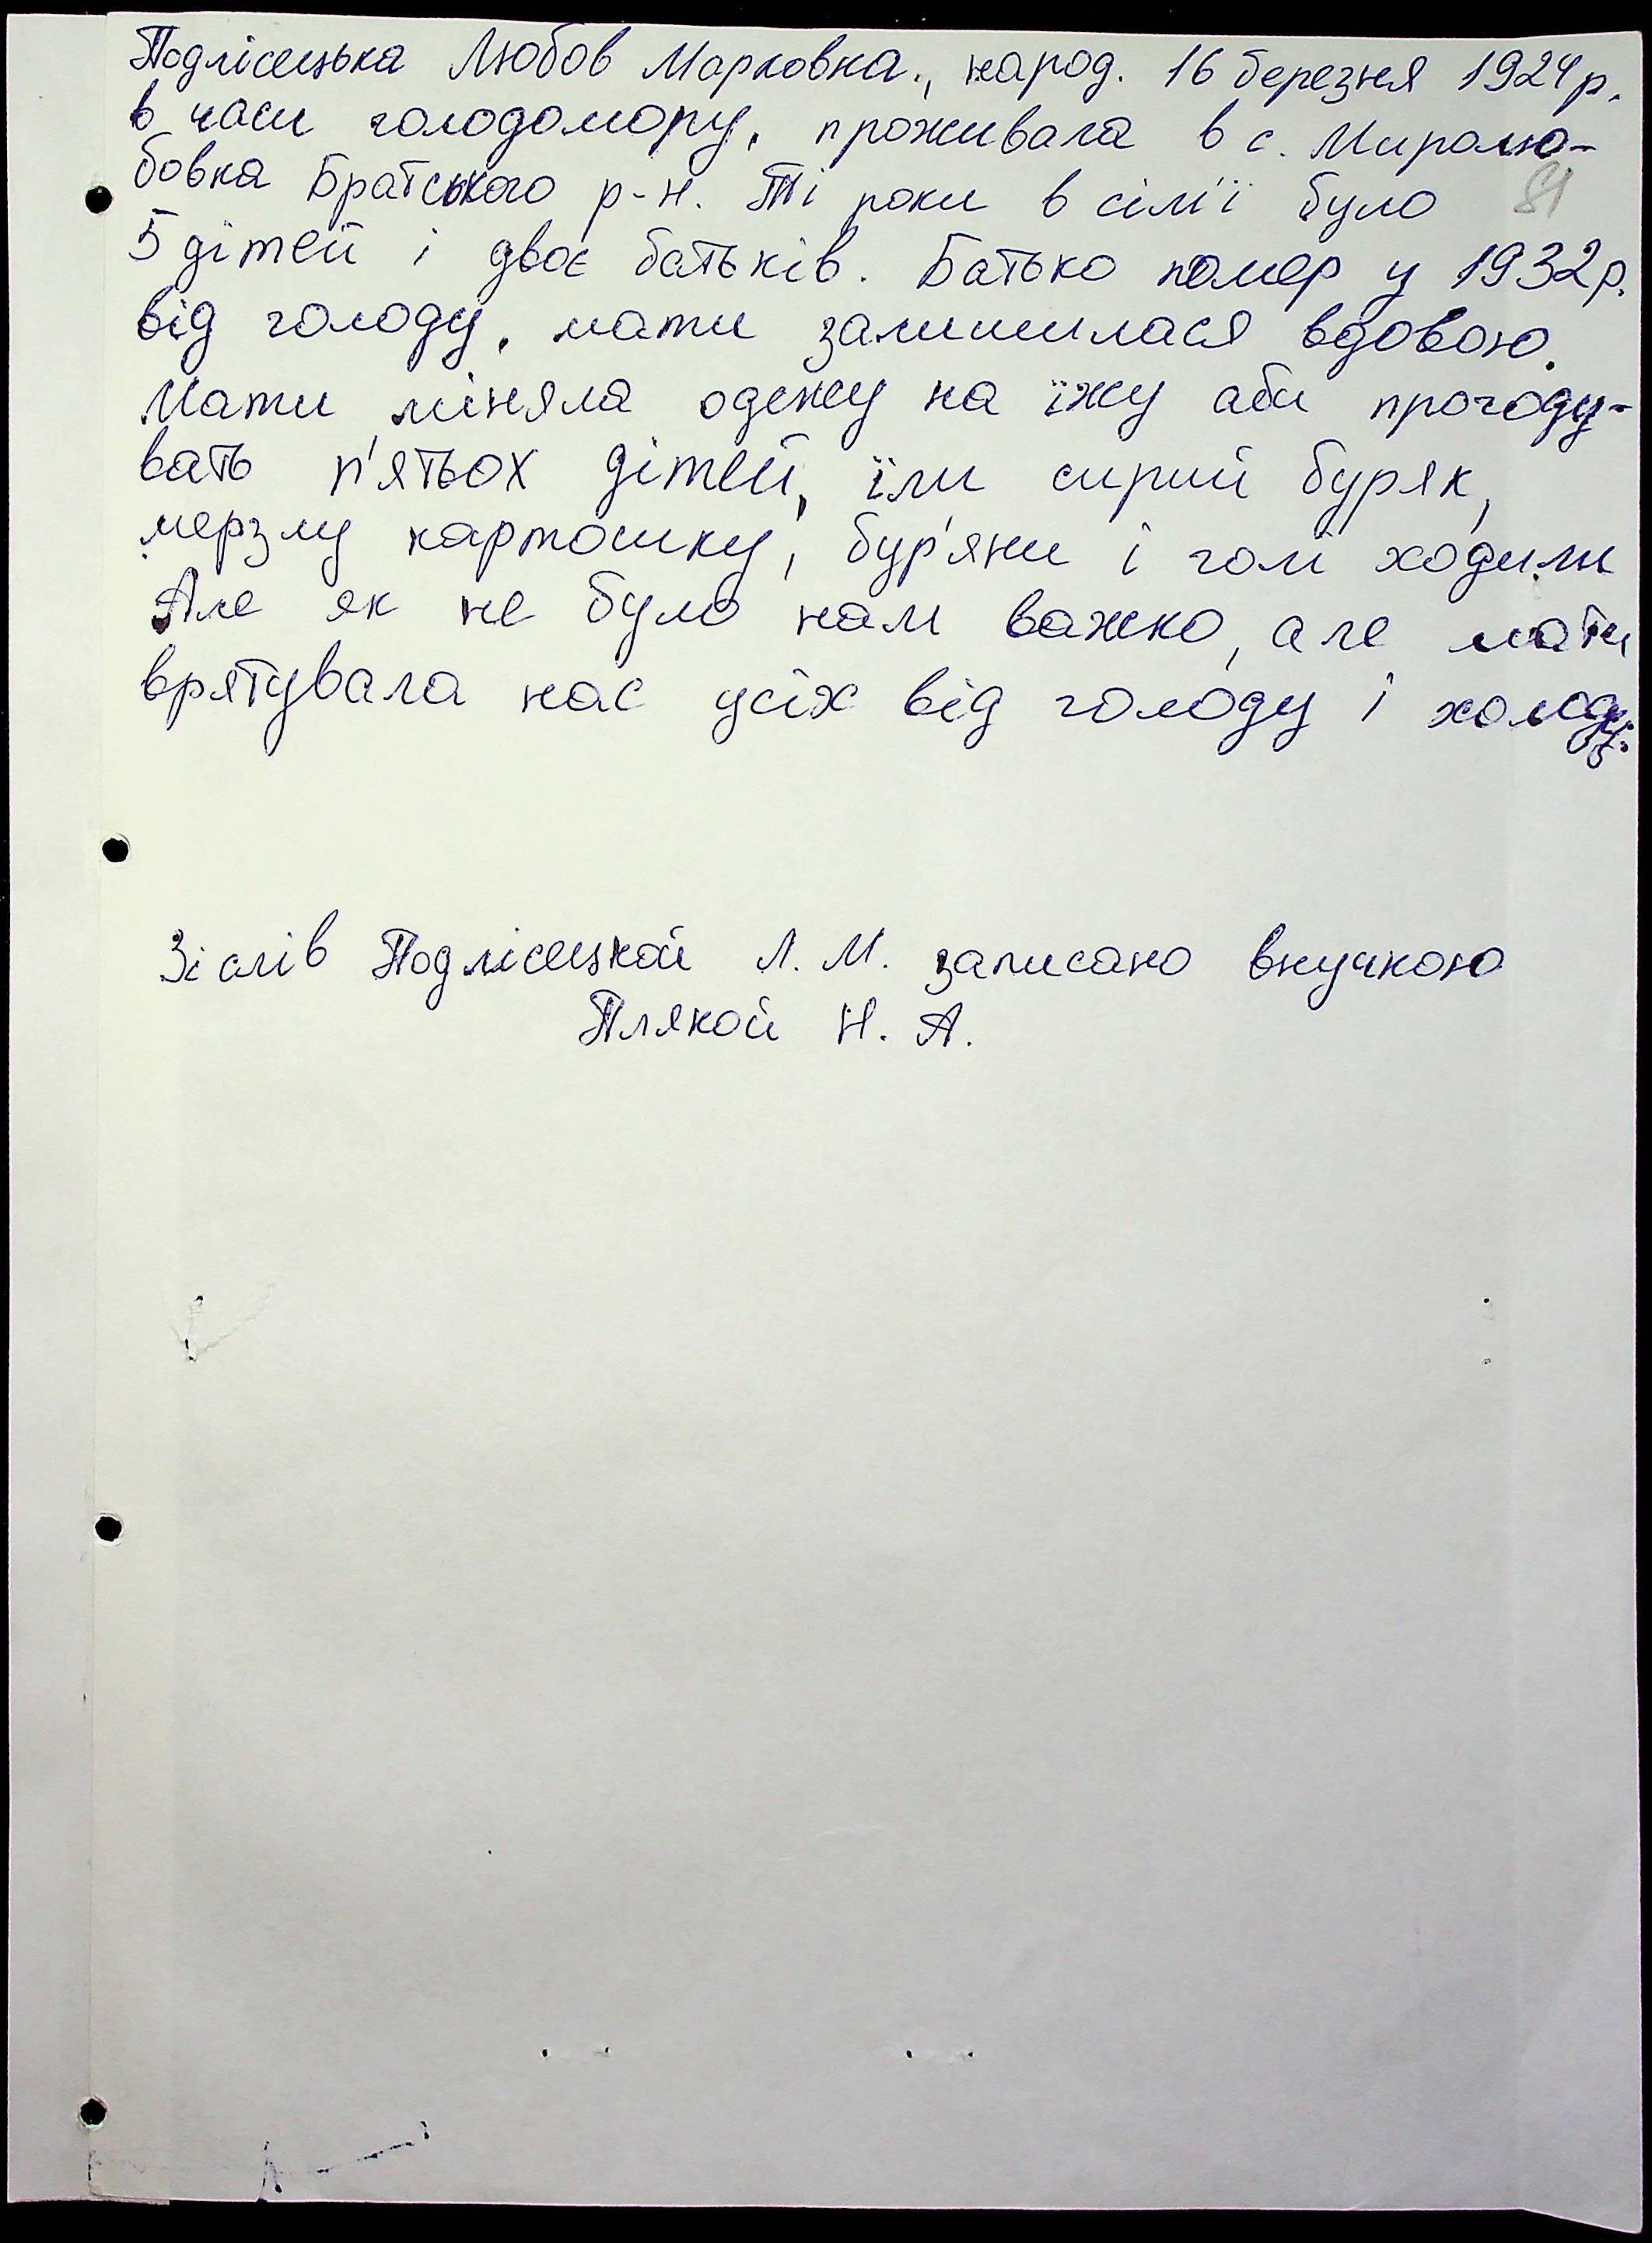 Подлісецька Любов Марковна., народ. 16 березня 1924р.
в часи голодомору, проживала в с. Миролю-
бовка Братського р-н. Ті роки в сімї було
81
5 дітей і двоє батьків. Батько помер у 1932р.
від голоду, мати залишилася вдовою.
Мати міняла одежу на їжу аби прогоду-
вать п'ятьох дітей, їли сирий буряк,
мерзлу картошку, бур'яни і голі ходили
Але як не було нам важко, але мати
врятувала нас усіх від голоду і холоду.
Зі слів Подлісецкой Л. М. записано внучкою
Плякой Н. А.